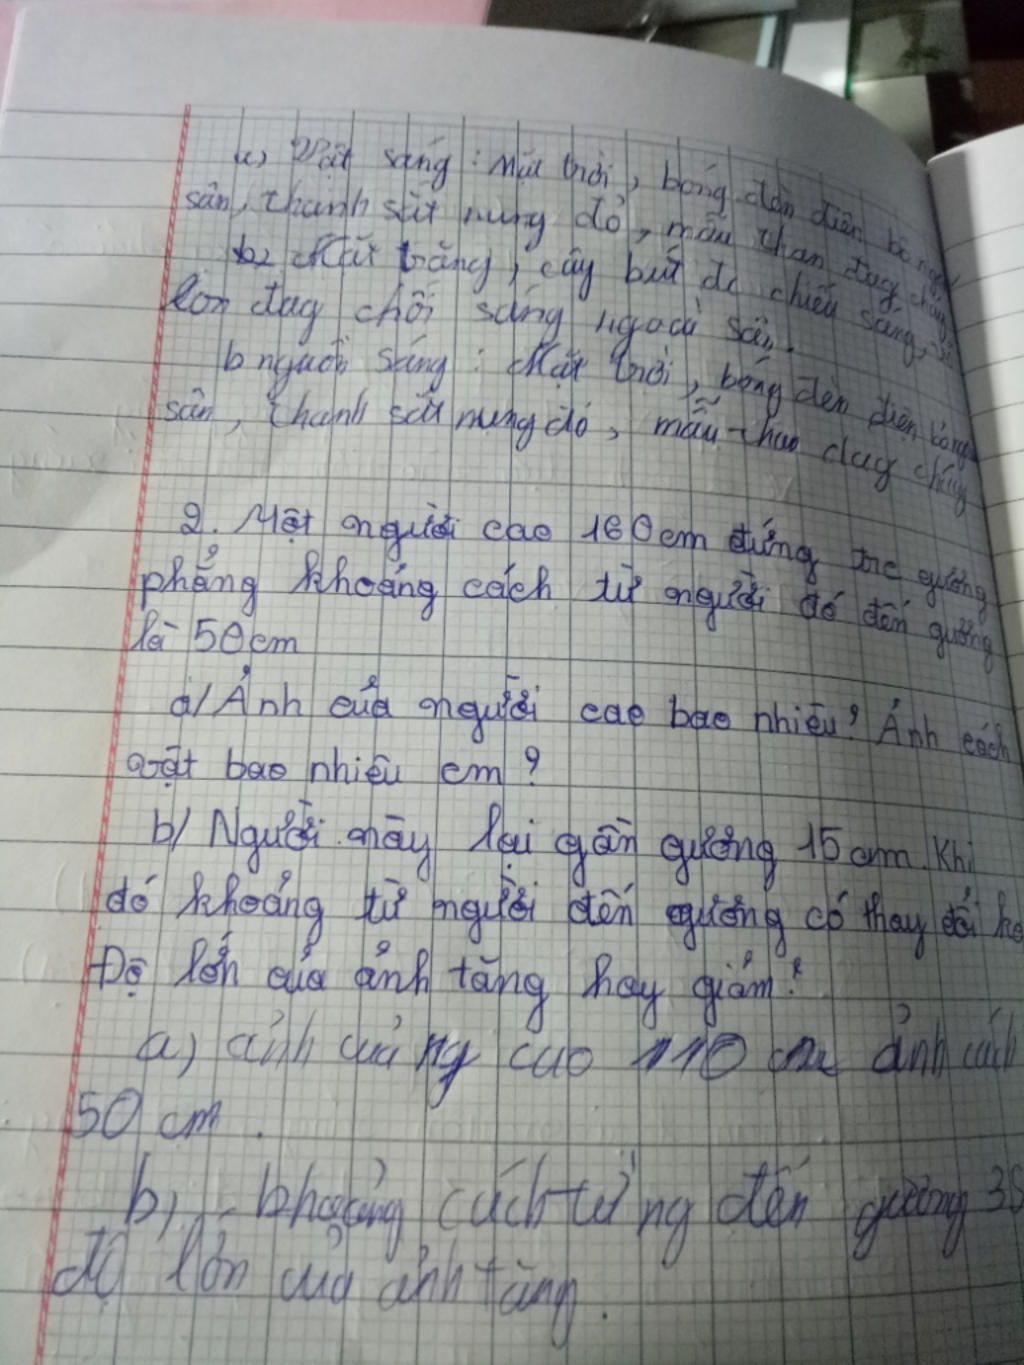 a) Vật sáng : Mặt trời, bóng đèn điện
sân, thanh sắt nung đỏ, mẫu than đag cháy
b2 Mặt trăng, cây bút dc chiếu sáng,
lon đag chối sáng ngoài sân.
b nguồn sáng : Mặt trời, bóng đèn điện
sân, thanh sắt nung đỏ, mẫu than đag cháy
2. Một người cao 160cm đứng trc gương
phẳng khoảng cách từ người đó đến gương
là 50cm
a/ Ảnh của người cao bao nhiêu? Ảnh cách
vật bao nhiêu cm?
b/ Người này lại gần gương 15cm. Khi
đó khoảng từ người đến gương có thay đổi ko
Độ lớn của ảnh tăng hay giảm?
a) ảnh của ng cao 110 cm ảnh cách
50 cm.
b) - khoảng cách từ ng đến gương 35
độ lớn của ảnh tăng.